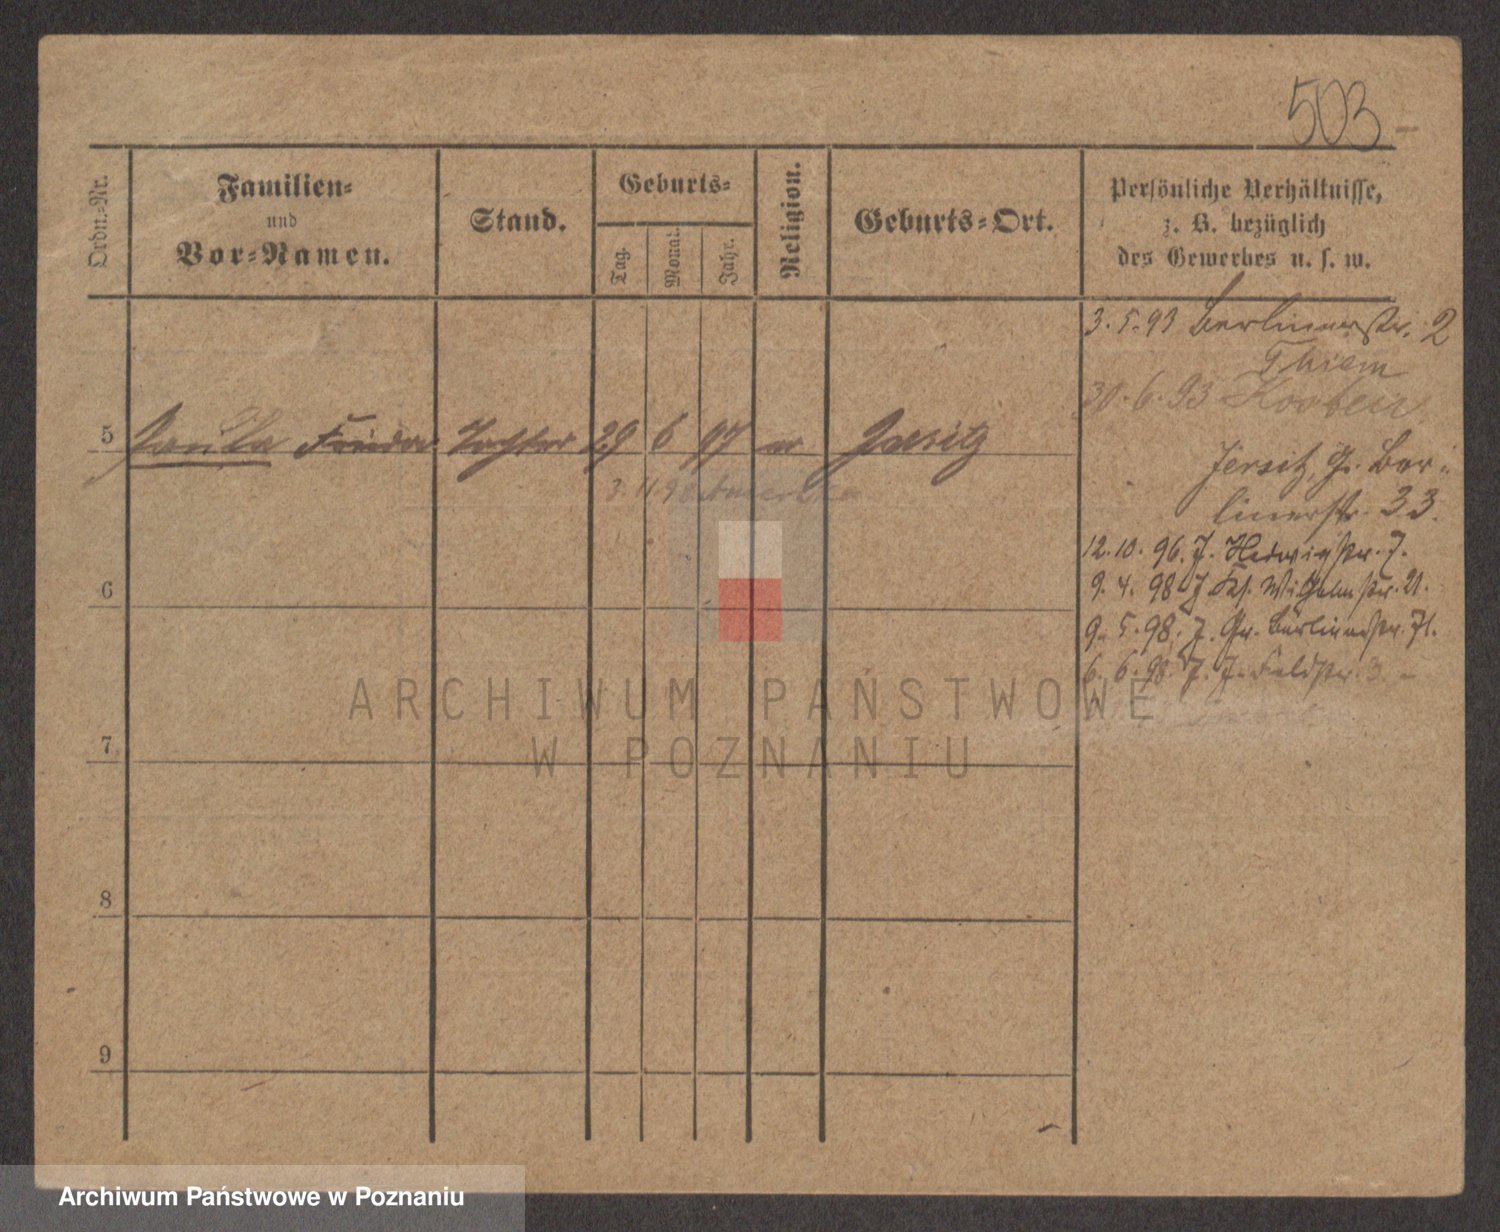 503
Ordn.-Nr.
Familien-
und
Vor-Namen.
Stand.
Geburts-
Tag.
Monat.
Jahr.
Religion.
Geburts-Ort.
Persönliche Verhältnisse,
z. B. bezüglich
des Gewerbes u. s. w.
3.5.93 Berlinerstr. 2
Thiem
30.6.93
5 Frieda Tochter 29 6 97 Jersitz
Jersitz, Gr. Ber-
linerstr. 33.
3. 11. 98
12.10.96. J. Hedwigstr. 7.
6
9.4.98 J. Ks. Wilhelmstr. 21.
9.5.98. J. Gr. Berlinerstr. 71.
6.6.98. J. Feldstr. 3.
ARCHIWUM PAŃSTWOWE
W POZNANIU
7
8
9
Archiwum Państwowe w Poznaniu